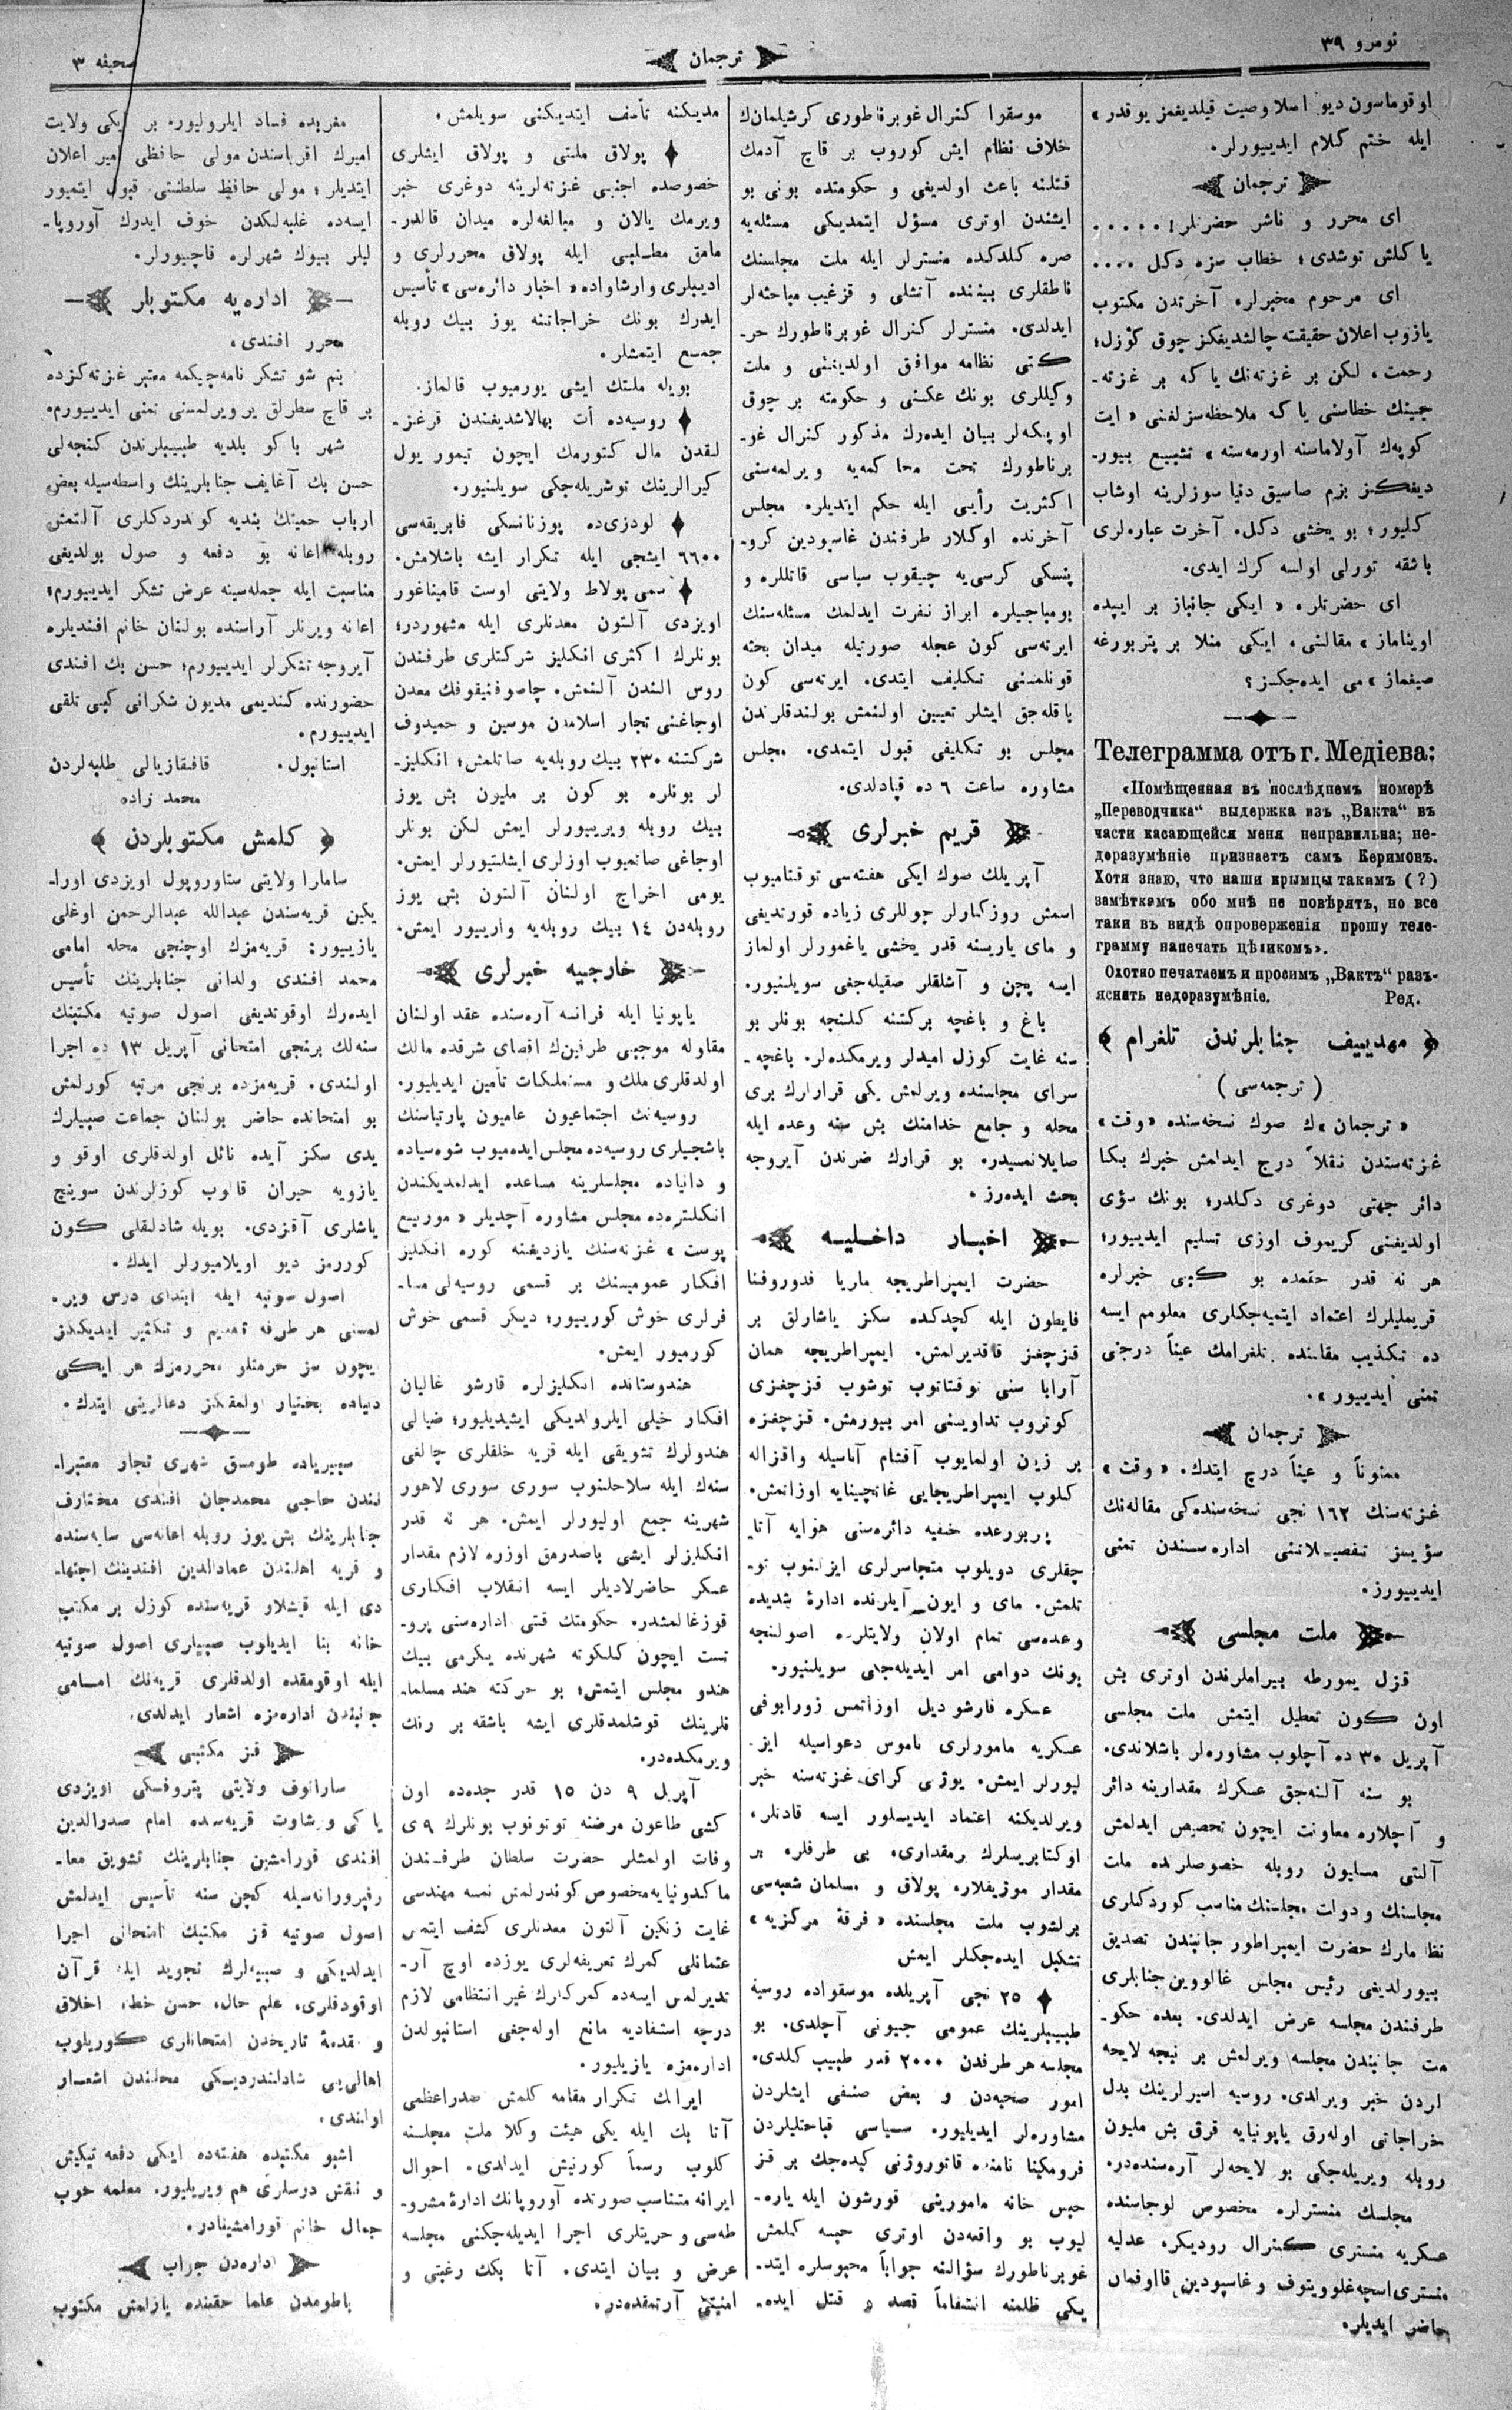 نومرو ٣٩
ترجمان
صحيفه ٣
اوقوماسون ديو اصلا وصيت قيلديغمز يوقدر»
ايله ختم كلام ايدييورلر.
ترجمان
اى محرر و ناشر حضرتلر! . . . . .
ياكلش توشدى؛ خطاب سزه دكل . . . .
اى مرحوم مخبرلر، آخرتدن مكتوب
يازوب اعلان حقيقته چالشديغكز چوق كوزل؛
رحمت، لكن بر غزته‌نك ياكه بر غزته‌-
جينك خطاسنى ياكه ملاحظه‌سزلغنى «ايت
كوپه‌ك آولاماسنه اورمه‌سنه» تشبيع بيور-
ديغكز بزم صاسيق دنيا سوزلرينه اوشاب
كليور؛ بو يخشى دكل. آخرت عباره‌لرى
باشقه تورلى اولسه كرك ايدى.
اى حضرتلر، «ايكى جانباز بر ايپده
اويناماز» مقالنى، ايكى منلا بر پتربورغه
صيغماز» مى ايده‌جكسز؟
Телеграмма отъ г. Медіева:
«Помѣщенная въ послѣднемъ номерѣ
„Переводчика“ выдержка изъ „Вакта“ въ
части касающейся меня неправильна; не-
доразумѣніе признаетъ самъ Керимовъ.
Хотя знаю, что наши крымцы такимъ (?)
замѣткамъ обо мнѣ не повѣрятъ, но все
таки въ видѣ опроверженія прошу теле-
грамму напечать цѣликомъ».
Охотно печатаемъ и просимъ „Вактъ“ разъ-
яснить недоразумѣніе. Ред.
مهدييف جنابلرندن تلغرام
(ترجمه‌سى)
«ترجمان»ك صوك نسخه‌سنده «وقت»
غزته‌سندن نقلاً درج ايدلمش خبرك بكا
دائر جهتى دوغرى دكلدر؛ بونك سؤى
اولديغنى كريموف اوزى تسليم ايدييور؛
هر نه قدر حقمده بو كبى خبرلره
قريمليلرك اعتماد ايتميه‌جكلرى معلومم ايسه
ده تكذيب مقامنده تلغرامك عيناً درجنى
تمنى ايدييور».
ترجمان
ممنوناً و عيناً درج ايتدك. «وقت»
غزته‌سنك ١٦٢ نجى نسخه‌سنده‌كى مقاله‌نك
سؤيسز تفصيلاتنى اداره‌سندن تمنى
ايدييورز.
ملت مجلسى
قزل يمورطه بيراملرندن اوترى بش
اون كون تعطيل ايتمش ملت مجلسى
آپريل ٣٠ ده آچلوب مشاوره‌لر باشلاندى.
بو سنه آلنه‌جق عسكرك مقدارينه دائر
و آچلاره معاونت ايچون تخصيص ايدلمش
آلتى مليون روبله خصوصلرنده ملت
مجلسنك و دولت مجلسنك مناسب كوردكلرى
نظامارك حضرت ايمپراطور جانبندن تصديق
بيورلديغى رئيس مجلس غالووين جنابلرى
طرفندن مجلسه عرض ايدلدى. بعده حكو-
مت جانبندن مجلسه ويرلمش بر نيجه لايحه
لردن خبر ويرلدى. روسيه اسيرلرينك بدل
خراجاتى اوله‌رق ياپونيايه قرق بش مليون
روبله ويريله‌جكى بو لايحه‌لر آره‌سنده‌در.
مجلسك منسترلره مخصوص لوجاسنده
عسكريه منسترى كنرال روديكر، عدليه
منسترى اسچه‌غلوويتوف و غاسپودين قااوفمان
حاضر ايديلر.
موسقوا كنرال غوبرناطورى كرشيلمان‌ك
خلاف نظام ايش كوروب بر قاچ آدمك
قتلنه باعث اولديغى و حكومتده بونى بو
ايشندن اوترى مسؤل ايتمديكى مسئله‌يه
صره كلدكده منسترلر ايله ملت مجلسنك
ناطقلرى بيننده آتشلى و قزغين مباحثه‌لر
ايدلدى. منسترلر كنرال غوبرناطورك حر-
كتى نظامه موافق اولديغنى و ملت
وكيللرى بونك عكسنى و حكومته بر چوق
اوپكه‌لر بيان ايده‌رك مذكور كنرال غو-
برناطورك تحت محاكمه‌يه ويرلمه‌سنى
اكثريت رأيى ايله حكم ايتديلر. مجلس
آخرنده اوكلار طرفندن غاسپودين كرو-
پنسكى كرسى‌يه چيقوب سياسى قاتللره و
بومباجيلره ابراز نفرت ايدلمك مسئله‌سنك
ايرته‌سى كون عجله صورتيله ميدان بحثه
قونلمسنى تكليف ايتدى. ايرته‌سى كون
باقله‌جق ايشلر تعيين اولنمش بولندقلرندن
مجلس بو تكليفى قبول ايتمدى. مجلس
مشاوره ساعت ٦ ده قپادلدى.
قريم خبرلرى
آپريلك صوك ايكى هفته‌سى توقتاميوب
اسمش روزكارلر چوللرى زياده قورتديغى
و ماى ياريسنه قدر يخشى ياغمورلر اولماز
ايسه پچن و آشلقلر صقيله‌جغى سويلنيور.
باغ و باغچه بركتنه كلنجه بونلر بو
سنه غايت كوزل اميدلر ويرمكده‌لر. باغچه-
سراى مجلسنده ويرلمش يكى قرارلرك برى
محله و جامع خدامنك بش سنه وعده ايله
صايلانمسيدر. بو قرارك ضرندن آيروجه
بحث ايده‌رز.
اخبار داخليه
حضرت ايمپراطريجه ماريا فدوروفنا
فايطون ايله كچدكده سكز ياشارلق بر
قزچغز قاقديرلمش. ايمپراطريجه همان
آرابا سنى توقتاتوب توشوب قزچغزى
كوتروب تداويسنى امر بيورمش. قزچغزه
بر زيان اولمايوب آقشام آناسيله واقزاله
كلوب ايمپراطريجايى غاتچينايه اوزاتمش.
پربورغده خفيه دائره‌سنى هوايه آتا
جقلرى دويلوب متجاسرلرى ايزلنوب تو-
تلمش. ماى و ايون آيلرنده ادارهٔ شديده
وعده‌سى تمام اولان ولايتلرده اصولنجه
بونك دوامى امر ايديله‌جكى سويلنيور.
عسكره قارشو ديل اوزاتمس زورابوفى
عسكريه مامورلرى ناموس دعواسيله ايز-
ليورلر ايمش. يوژنى كراى غزته‌سنه خبر
ويرلديكنه اعتماد ايديلور ايسه قادتلر،
اوكتابريسلرك برمقدارى، بى طرفلر، بر
مقدار موژيقلار، پولاق و مسلمان شعبه‌سى
برلشوب ملت مجلسنده «فرقهٔ مركزيه»
تشكيل ايده‌جكلر ايمش
٢٥ نجى آپريلده موسقواده روسيهٔ
طبيبلرينك عمومى جيونى آچلدى. بو
مجلسه هر طرفدن ٢٠٠٠ قدر طبيب كلدى.
امور صحيه‌دن و بعض صنفى ايشلردن
مشاوره‌لر ايديليور. سياسى قباحتليلردن
فرومكينا نامنده قاتوروژنى كيده‌جك بر قز
حبس خانه مامورينى قورشون ايله ياره-
ليوب بو واقعه‌دن اوترى حبسه كلمش
غوبرناطورك سؤالنه جواباً محبوسلره ايتد-
يكى ظلمنه انتقاماً قصد و قتل ايده-
مديكنه تأسف ايتديكنى سويلمش.
پولاق ملتى و پولاق ايشلرى
خصوصده اجنبى غزته‌لرينه دوغرى خبر
ويرمك يالان و مبالغه‌لره ميدان قالدر-
مامق مطلبى ايله پولاق محررلرى و
اديبلرى وارشاواده «اخبار دائره‌سى» تأسيس
ايدرك بونك خراجاتنه يوز بيك روبله
جمع ايتمشلر.
بويله ملتك ايشى يورميوب قالماز.
روسيه‌ده آت بهالاشديغندن قرغز-
لقدن مال كتورمك ايچون تيمور يول
كيرالرينك توشريله‌جكى سويلنيور.
لودزى‌ده پوزنانسكى فابريقه‌سى
٦٦٠٠ ايشجى ايله تكرار ايشه باشلامش.
سمى پولاط ولايتى اوست قاميناغور
اويزدى آلتون معدنلرى ايله مشهوردر؛
بونلرك اكثرى انكليز شركتلرى طرفندن
روس النندن آلنمش. چاصوفنيقوفك معدن
اوجاغنى تجار اسلامدن موسين و حميدوف
شركتنه ٢٣٠ بيك روبله‌يه صاتلمش؛ انكليز-
لر بونلره بو كون بر مليون بش يوز
بيك روبله ويرييورلر ايمش لكن بونلر
اوجاغى صاتميوب اوزلرى ايشلتيورلر ايمش.
يومى اخراج اولنان آلتون بش يوز
روبله‌دن ١٤ بيك روبله‌يه وارييور ايمش.
خارجيه خبرلرى
ياپونيا ايله فرانسه آره‌سنده عقد اولنان
مقاوله موجبى طرفين‌ك اقصاى شرقده مالك
اولدقلرى ملك و مستملكات تأمين ايديليور.
روسيه‌نك اجتماعيون عاميون پارتياسنك
باشجيلرى روسيه‌ده مجلس ايده‌ميوب شوه‌سياده
و دانياده مجلسلرينه مساعده ايدلمديكندن
انكلتره‌ده مجلس مشاوره آچديلر «مورنينغ
پوست» غزته‌سنك يازديغنه كوره انكليز
افكار عموميسنك بر قسمى روسيه‌لى مسا-
فرلرى خوش كورييور؛ ديكر قسمى خوش
كورميور ايمش.
هندوستانده انكليزلره قارشو غاليان
افكار خيلى ايلرولديكى ايشيديليور؛ ضيالى
هندولرك تشويقى ايله قريه خلقلرى چالغى
سنه‌ك ايله سلاحلنوب سورى سورى لاهور
شهرينه جمع اوليورلر ايمش. هر نه قدر
انكليزلر ايشى باصدرمق اوزره لازم مقدار
عسكر حاضرلاديلر ايسه انقلاب افكارى
قوزغالمشدر. حكومتك قتى اداره‌سنى پرو-
تست ايچون كلكوته شهرنده يكرمى بيك
هندو مجلس ايتمش؛ بو حركته هند مسلما-
نلرينك قوشلمدقلرى ايشه باشقه بر رنك
ويرمكده‌در.
آپريل ٩ دن ١٥ قدر جده‌ده اون
كشى طاعون مرضنه توتونوب بونلرك ٩ ى
وفات اولمشلر حضرت سلطان طرفندن
ماكدونيايه مخصوص كوندرلمش نمسه مهندسى
غايت زنكين آلتون معدنلرى كشف ايتمس
عثمانلى كمرك تعريفه‌لرى يوزده اوچ آر-
تديرلمس ايسه‌ده كمركلرك غير انتظامى لازم
درجه استفاديه مانع اوله‌جغى استانبولدن
اداره‌مزه يازيليور.
ايرانك تكرار مقامه كلمش صدراعظمى
آتا بك ايله يكى هيئت وكلا ملت مجلسنه
كلوب رسماً كورنيش ايدلدى. احوال
ايرانه متناسب صورتده آوروپانك ادارهٔ مشرو-
طه‌سى و حريتلرى اجرا ايديله‌جكنى مجلسه
عرض و بيان ايتدى. آتا بكك رغبتى و
امنيتى آرتمقده‌در.
مغربده فساد ايلروليور. بر ايكى ولايت
اميرك اقرباسندن مولى حافظى امير اعلان
ايتديلر؛ مولى حافظ سلطنتى قبول ايتميور
ايسه‌ده غلبه‌لكدن خوف ايدرك آوروپا-
ليلر بيوك شهرلره قاچييورلر.
اداره‌يه مكتوبلر
محرر افندى،
بنم شو تشكر نامه‌چيكمه معتبر غزته‌كزده
بر قاچ سطرلق ير ويرلمسنى تمنى ايدييورم.
شهر باكو بلديه طبيبلرندن كنجه‌لى
حسن بك آغايف جنابلرينك واسطه‌سيله بعض
ارباب حميتك بنديه كوندردكلرى آلتمش
روبله اعانه بو دفعه و صول بولديغى
مناسبت ايله جمله‌سينه عرض تشكر ايدييورم؛
اعانه ويرنلر آراسنده بولنان خانم افنديلره
آيروجه تشكرلر ايدييورم؛ حسن بك افندى
حضورنده كنديمى مديون شكرانى كبى تلقى
ايدييورم.
استانبول. قافقازيالى طلبه‌لردن
محمد زاده
كلمش مكتوبلردن
سامارا ولايتى ستاوروپول اويزدى اورا-
يكين قريه‌سندن عبدالله عبدالرحمن اوغلى
يازييور: قريه‌مزك اوچنجى محله امامى
محمد افندى ولدانى جنابلرينك تأسيس
ايده‌رك اوقوتديغى اصول صوتيه مكتبنك
سنه‌لك برنجى امتحانى آپريل ١٣ ده اجرا
اولندى. قريه‌مزده برنجى مرتبه كورلمش
بو امتحانده حاضر بولنان جماعت صبيلرك
يدى سكز آيده نائل اولدقلرى اوقو و
يازويه حيران قالوب كوزلرندن سوينچ
ياشلرى آقزدى. بويله شادلقلى كون
كوررمز ديو اويلاميورلر ايدك.
اصول صوتيه ايله ابتداى درس وير-
لمسنى هر طرفه تعميم و تكثير ايديكز
يچون سز حرمتلو محررمزك هر ايكى
دنياده بختيار اولمقكز دعالرينى ايتدك.
سيبرياده طومسق شهرى تجار معتبرا-
نندن حاجى محمدجان افندى مختارف
جنابلرينك بش يوز روبله اعانه‌سى سايه‌سنده
و قريه اهلندن عمادالدين افندينك اجتها-
دى ايله قيشلاو قريه‌سنده كوزل بر مكتب
خانه بنا ايديلوب صبيلرى اصول صوتيه
ايله اوقومقده اولدقلرى قريه‌نك امامى
جانبندن اداره‌مزه اشعار ايدلدى.
قز مكتبى
ساراتوف ولايتى پتروفسكى اويزدى
ياكى ورشاوت قريه‌سنده امام صدرالدين
افندى قورامشين جنابلرينك تشويق معا-
رفپرورانه‌سيله كچن سنه تأسيس ايدلمش
اصول صوتيه قز مكتبك امتحانى اجرا
ايدلديكى و صبيه‌لرك تجويد ايله قرآن
اوقودقلرى، علم حال، حسن خط، اخلاق
و مقدمهٔ تاريخدن امتحانلرى كوريلوب
اهالى‌يى شادلندرديكى محلندن اشعار
اولندى.
اشبو مكتبده هفته‌ده ايكى دفعه تيكيش
و نقش درسلرى هم ويريليور. معلمه خوب
جمال خانم قورامشينادر.
اداره‌دن جواب
باطومدن علما حقنده يازلمش مكتوب